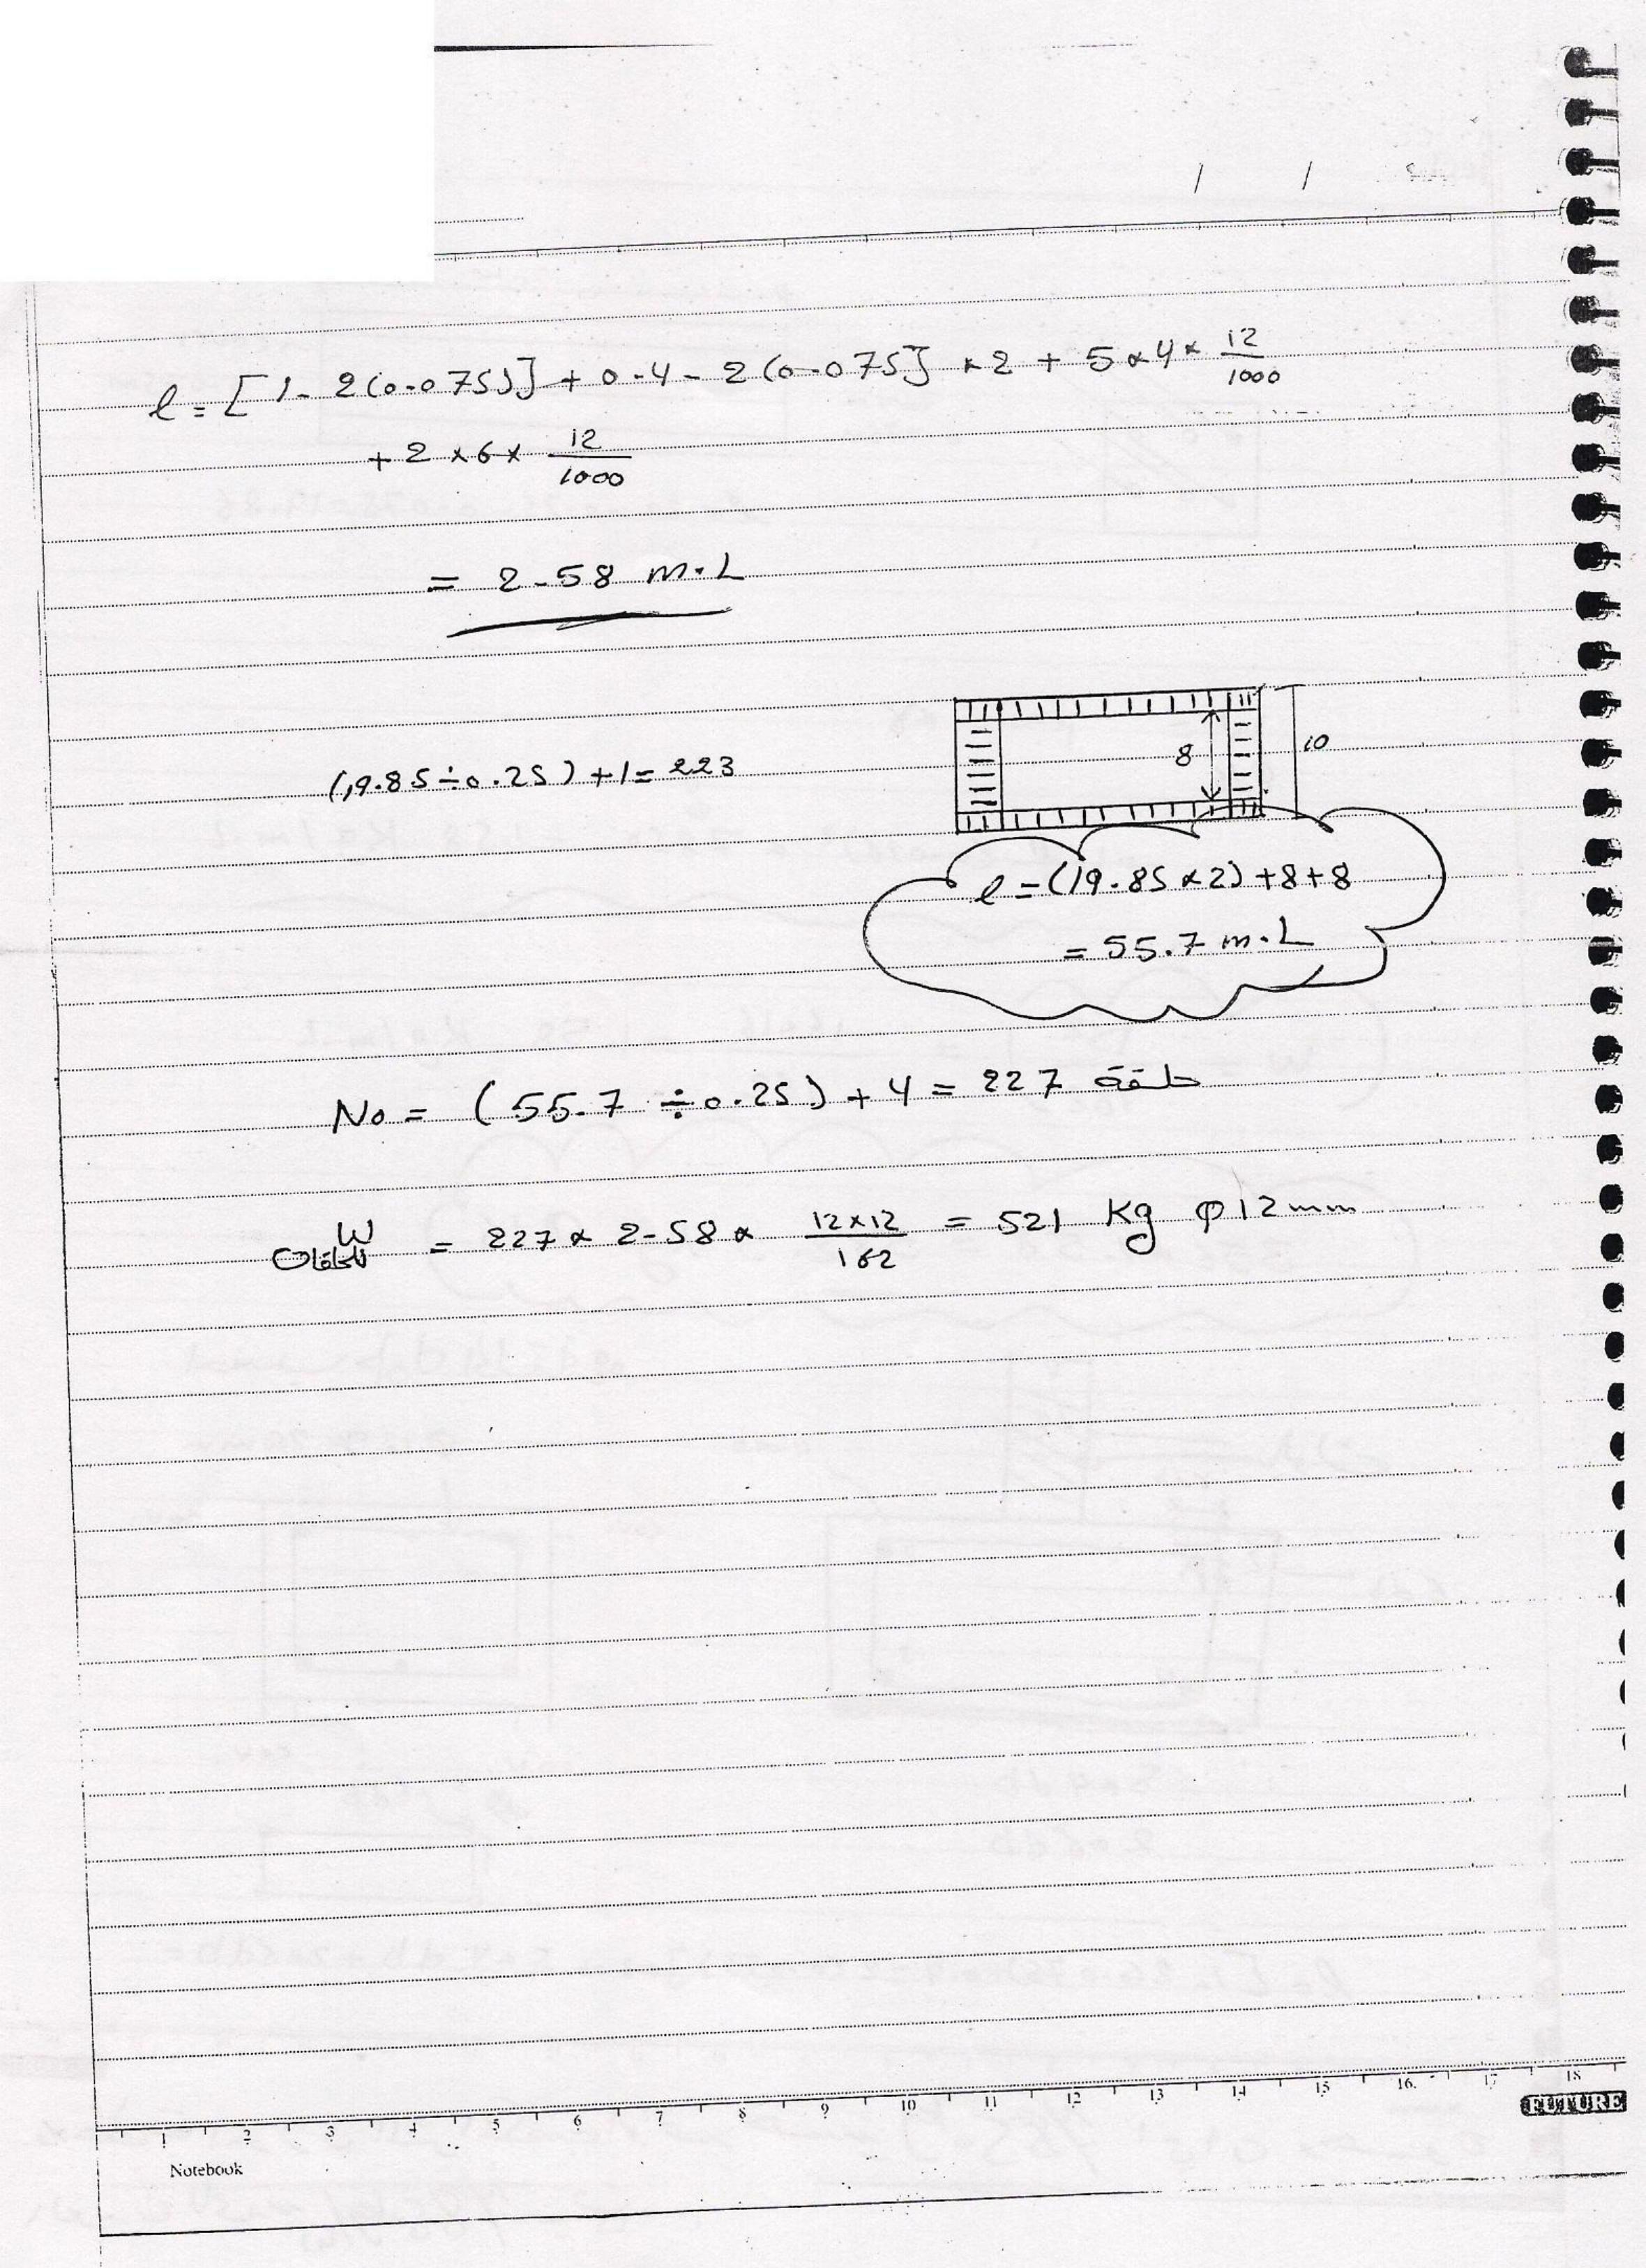 / /
l = [1 - 2(0.075)] + 0.4 - 2(0.075] × 2 + 5 × 4 × 12/1000
+ 2 × 6 × 12/1000
= 2.58 m.L
8
10
(19.85 ÷ 0.25) + 1 = 223
l = (19.85 × 2) + 8 + 8
= 55.7 m.L
No = (55.7 ÷ 0.25) + 4 = 227 حلقة
W للحلقات = 227 × 2.58 × 12×12/162 = 521 Kg φ12mm
1 2 3 4 5 6 7 8 9 10 11 12 13 14 15 16 17 18
FUTURE
Notebook